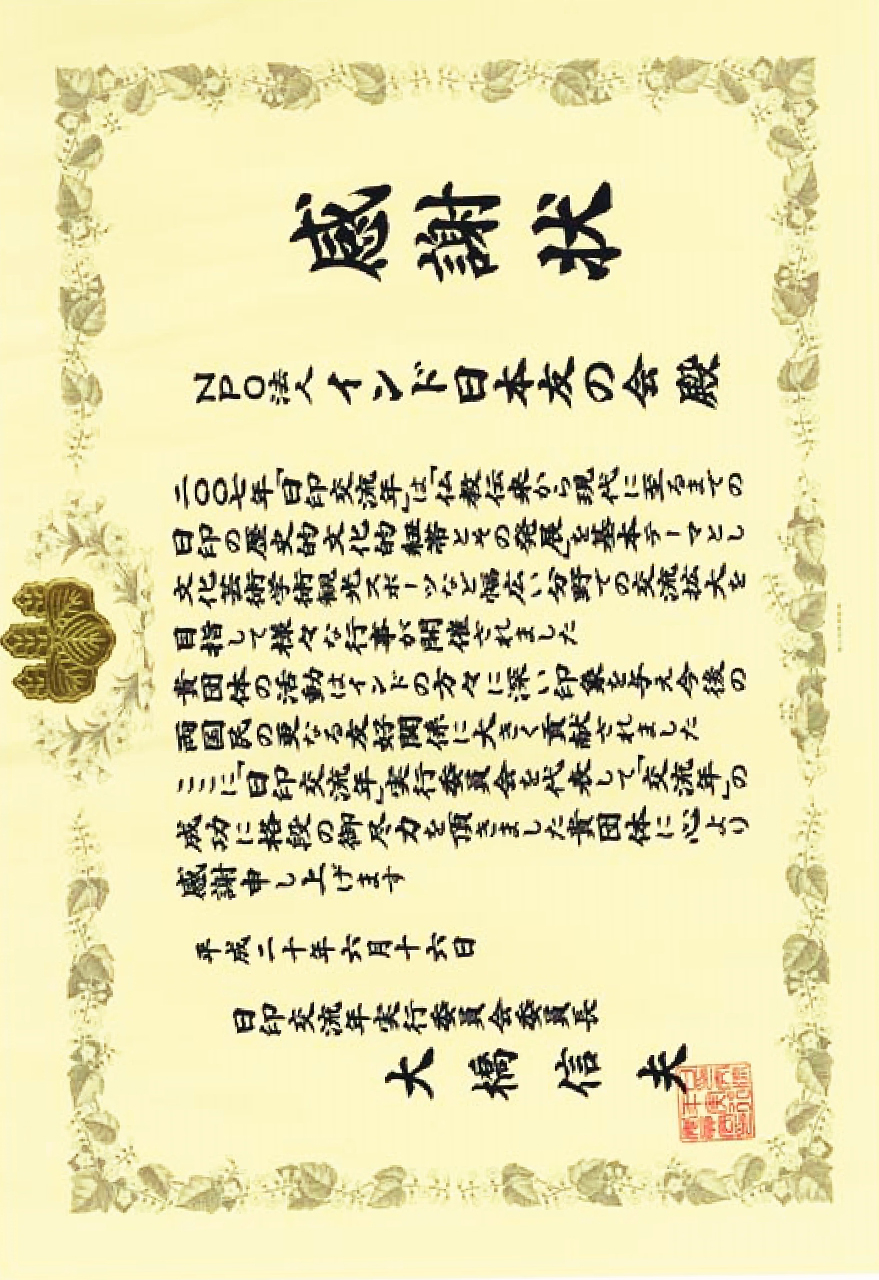 感謝状
NPO法人インド日本友の会殿
二〇〇七年「日印交流年」は「仏教伝来から現代に至るまでの
日印の歴史的文化的紐帯とその発展」を基本テーマとし
文化芸術学術観光スポーツなど幅広い分野での交流拡大を
目指して様々な行事が開催されました
貴団体の活動はインドの方々に深い印象を与え今後の
両国民の更なる友好関係に大きく貢献されました
ここに「日印交流年」実行委員会を代表して「交流年」の
成功に格段の御尽力を頂きました貴団体に心より
感謝申し上げます
平成二十年六月十六日
日印交流年実行委員会委員長
大橋信夫